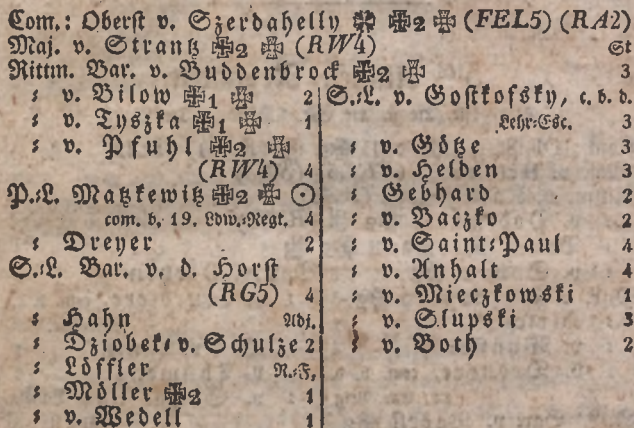 Com.: Oberst v. Szerdahelly ✠ ✠2 ✠ (FEL5) (RA2)
Maj. v. Strantz ✠2 ✠ (RW4) St
Rittm. Bar. v. Buddenbrock ✠2 ✠ 3
: v. Bilow ✠1 ✠ 2
: v. Tyszka ✠1 ✠ 1
: v. Pfuhl ✠2 ✠
(RW4) 4
P.:L. Matzkewitz ✠2 ✠ ⊙
com. b. 19. Ldw.:Regt. 4
: Dreyer 2
S.:L. Bar. v. d. Horst
(RG5) 4
: Hahn Adj.
: Dziobek: v. Schulze 2
: Löffler R.:F.
: Möller ✠2 1
: v. Wedell 1
S.:L. v. Gostkofsky, c. b. d.
Lehr:Esc. 3
: v. Götze 3
: v. Helden 3
: Gebhard 2
: v. Baczko 2
: v. Saint:Paul 4
: v. Anhalt 4
: v. Mieczkowski 1
: v. Slupski 3
: v. Both 2